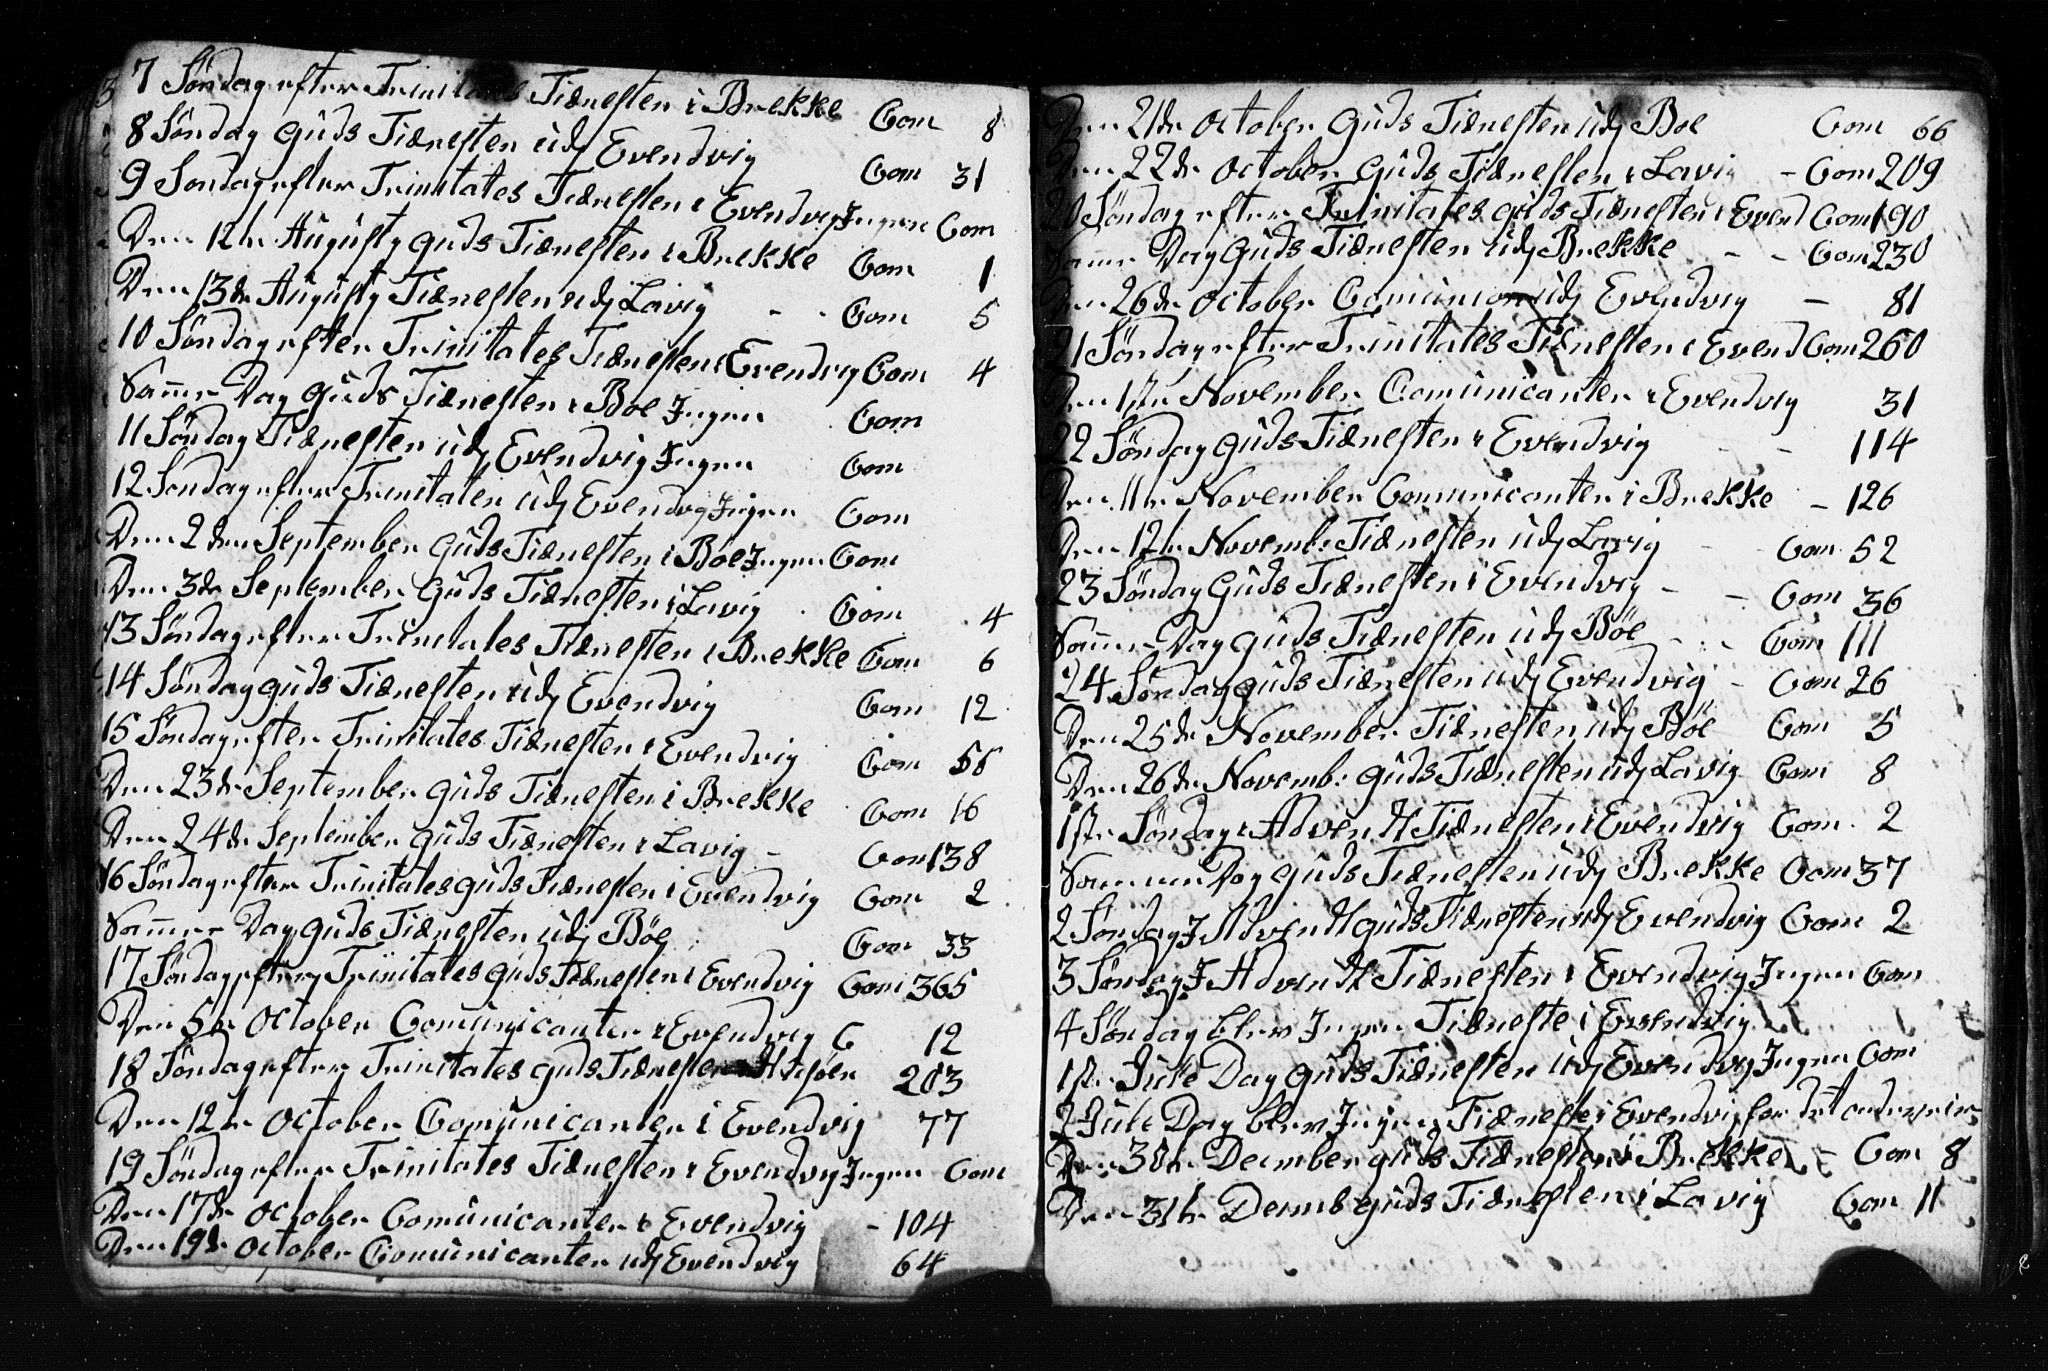 7 Søndag efter Trinitates Tiænesten i Brekke Com 8
8 Søndag Guds Tiænesten udj Evendvig Com 31
9 Søndag efter Trinitates Tiænesten i Evendvig Ingen Com
Den 12te Augusty Guds Tiænesten i Brekke Com 1
Den 13de Augusty Tiænesten udj Lavig - - Com 5
10 Søndag efter Trinitates Tiænesten i Evendvig Com 4
Samme Dag Guds Tiænesten i Boe Ingen Com
11 Søndag Tiænesten udj Evendvig Ingen Com
12 Søndag efter Trinitaten udj Evendvig Ingen Com
Den 2den September Guds Tiænesten i Böe Ingen Com
Den 3de September Guds Tiænesten i Lavig Com 4
13 Søndag efter Trinitates Tiænesten i Brekke Com 6
14 Søndag Guds Tiænesten udj Evendvig Com 12
15 Søndag efter Trinitates Tiænesten i Evendvig Com 56
Den 23de September Guds Tiænesten i Brekke Com 16
Den 24de September Guds Tiænesten i Lavig - Com 138
16 Søndag efter Trinitates Guds Tiænesten i Evendvig Com 2
Samme Dag Guds Tiænesten udj Böe Com 33
17 Søndag efter Trinitates Guds Tiænesten i Evendvig Com 365
Den 5te October Comunicanter i Evendvig C 12
18 Søndag efter Trinitates Guds Tiænesten 203
Den 12te October Comunicanter i Evendvig 77
19 Søndag efter Trinitates Tiænesten i Evendvig Ingen Com
Den 17de October Comunicanter i Evendvig - 104
Den 19de October Comunicanter udj Evendvig 64
Den 21de October Guds Tiænesten udj Boe Com 66
Den 22de October Guds Tiænesten i Lavig - Com 209
20 Søndag efter Trinitates Guds Tiænesten i Evend Com 190
Samme Dag Guds Tiænesten udj Brekke - - Com 230
Den 26de October Comunion udj Evendvig - 81
21 Søndag efter Trinitates Tiænesten i Evend Com 260
Den 1ste November Comunicanter i Evendvig 31
22 Søndag Guds Tiænesten i Evendvig - - 114
Den 11te November Comunicanter i Brekke - 126
Den 12te Novemb: Tiænesten udj Lavig - Com 52
23 Søndag Guds Tiænesten i Evendvig - - Com 36
Samme Dag Guds Tiænesten udj Böe - - Com 111
24 Søndag Guds Tiænesten udj Evendvig - Com 26
Den 25de November Tiænesten udj Böe Com 5
Den 26de Novemb: Guds Tiænesten udj Lavig Com 8
1ste Søndag i Advendt Tiænesten i Evendvig Com 2
Sammen Dag Guds Tiænesten udj Brekke Com 37
2 Søndag J Advendt Guds Tiænesten udj Evendvig Com 2
3 Søndag J Advendt Tiænesten i Evendvig Ingen Com
4 Søndag blev Ingen Tiæneste i Evendvig
1ste Jule Dag Guds Tiænesten udj Evendvig Ingen Com
2 Jule Dag blev Ingen Tiæneste i Evendvig for det
Den 30te December Guds Tiænesten i Brekke - Com 8
Den 31te Decemb Guds Tiænesten i Lavig Com 11